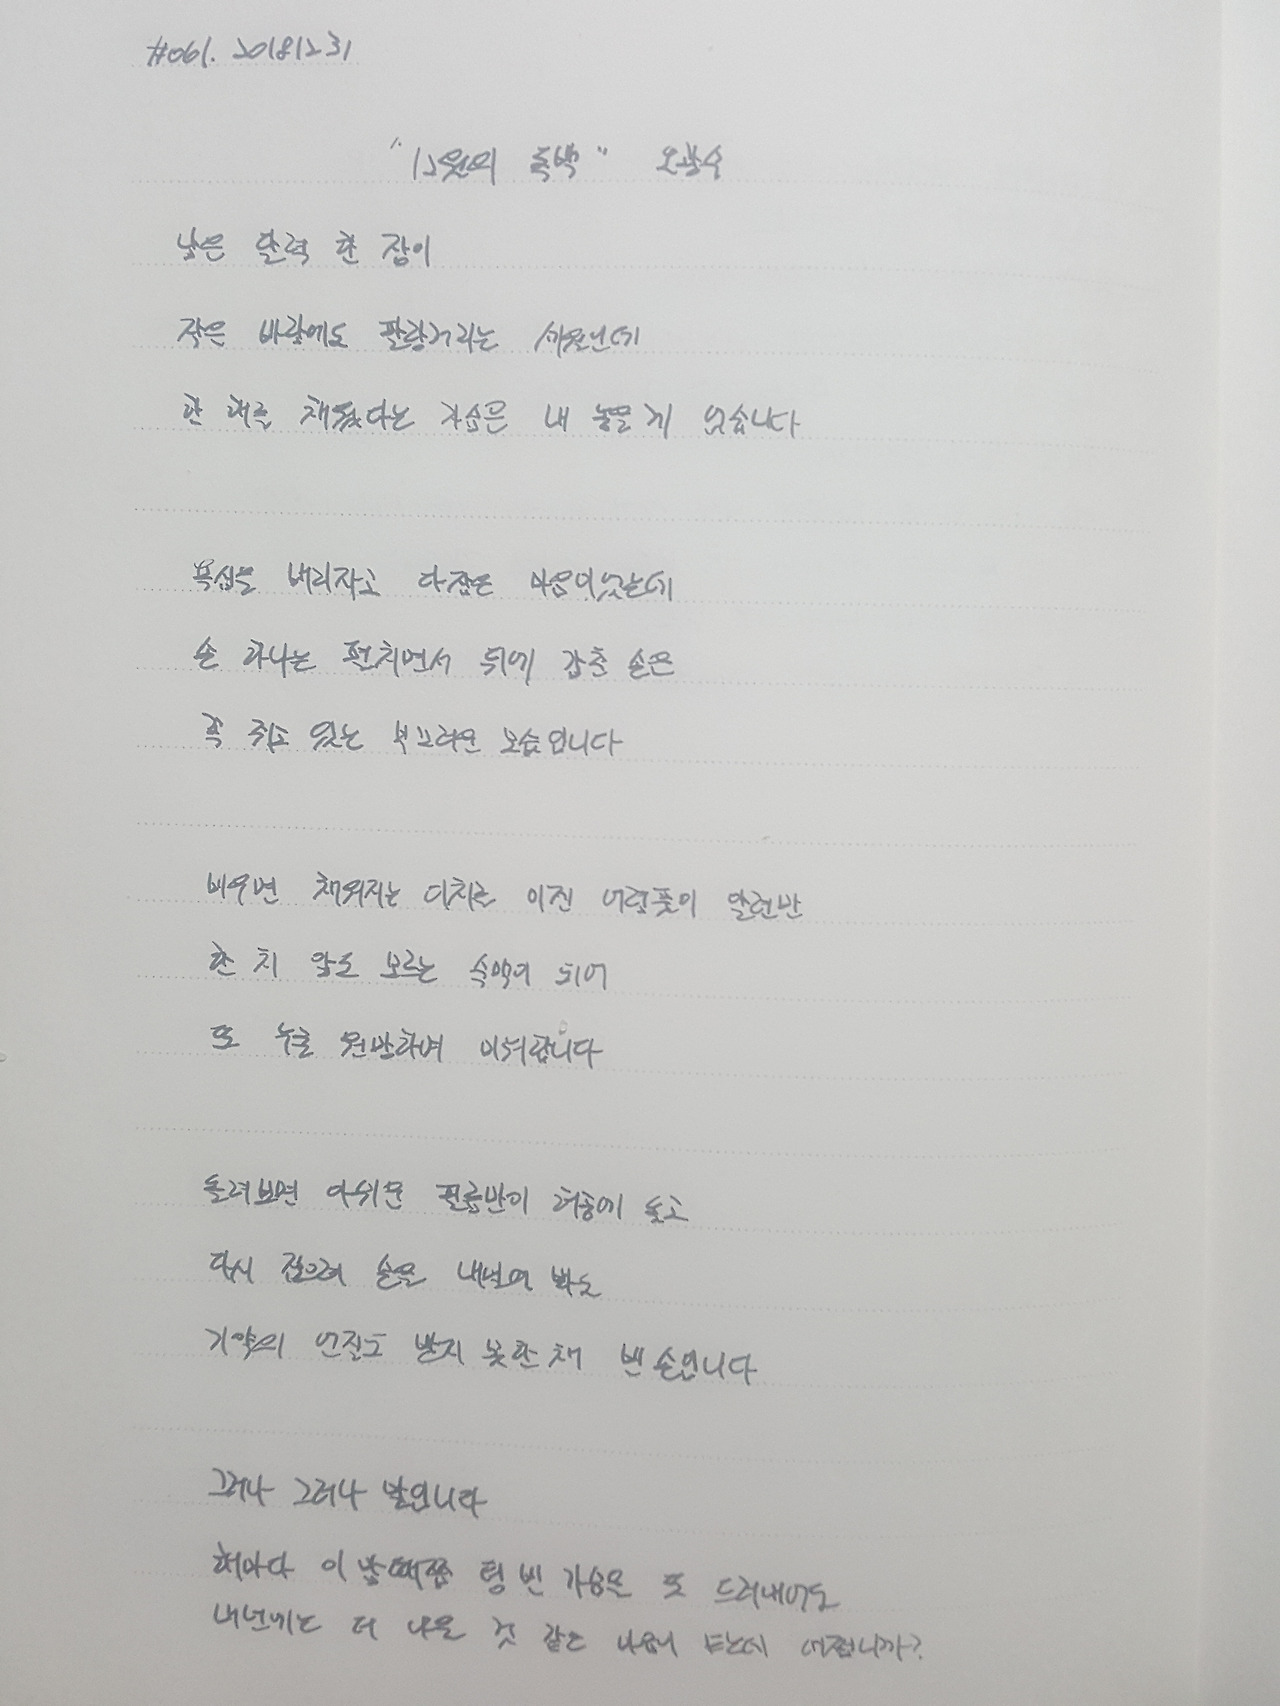 #061. 20181231
"12월의 독백" 오광수
남은 달력 한 장이
작은 바람에도 팔랑거리는 세월인데
한 해를 채웠다는 가슴은 내 놓을 게 없습니다
욕심을 버리자고 다잡은 마음이었는데
손 하나는 펼치면서 뒤에 감춘 손은
꼭 쥐고 있는 부끄러운 모습입니다
비우면 채워지는 이치를 이젠 어렴풋이 알련만
한 치 앞도 모르는 숙맥이 되어
또 누굴 원망하며 미워합니다
돌려보면 아쉬운 필름만이 허공에 돌고
다시 잡으려 손을 내밀어 봐도
기약의 언질도 받지 못한 채 빈 손입니다
그러나 그러나 말입니다
해마다 이 맘때쯤 텅 빈 가슴을 또 드러내어도
내년에는 더 나을 것 같은 마음이 드는데 어쩝니까?